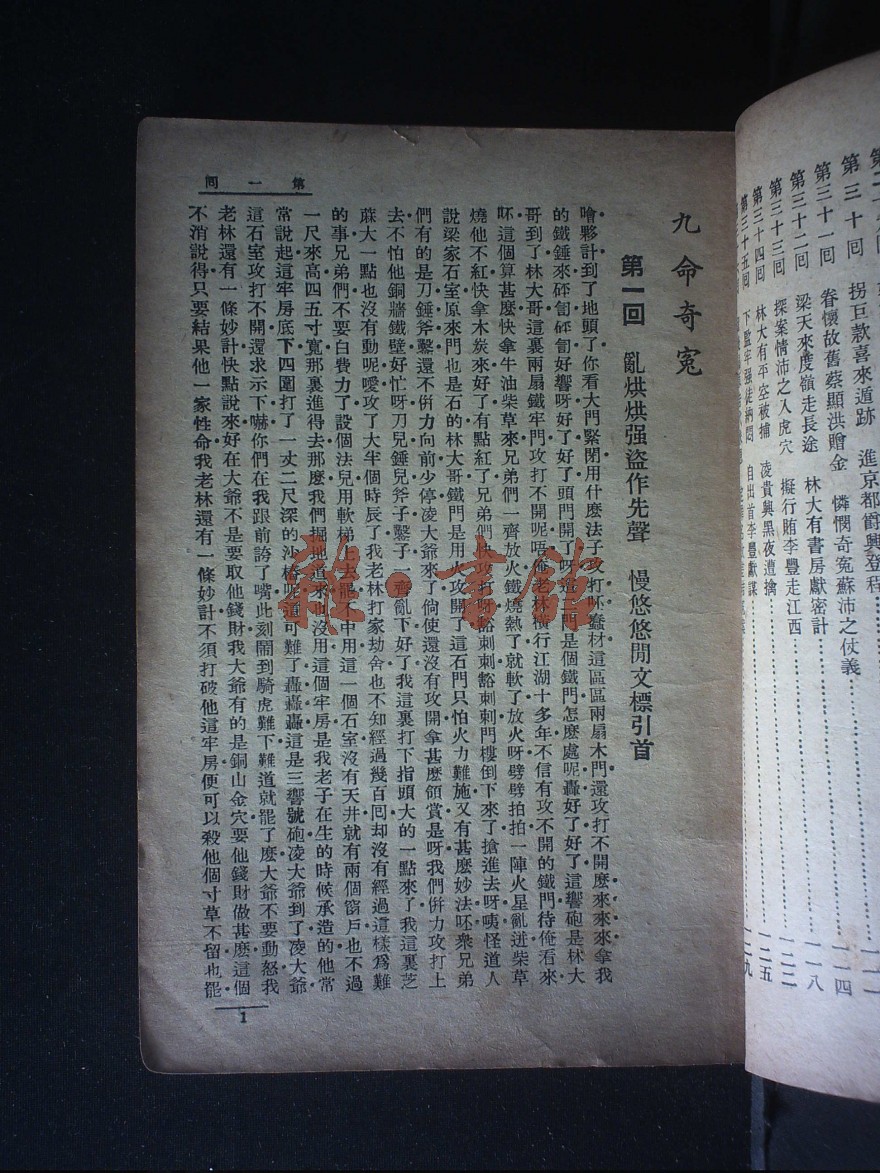 第三十回　拐巨款喜來遁跡　進京都爵興登程
第三十一回　眷懷故舊蔡顯洪贈金　憐憫奇冤蘇沛之仗義……一一四
第三十二回　梁天來度嶺走長途　林大有書房獻密計……一一八
第三十三回　探案情沛之入虎穴　擬行賄李豐走江西……一二二
第三十四回　林大有平空被捕　凌貴興黑夜遭擒……一二五
第三十五回　下監牢强徒納悶　自出首李豐獻謀……一二九
九命奇冤
第一回　亂烘烘强盜作先聲　慢悠悠閒文標引首
噲夥計到了地頭了你看大門緊閉用什麼法子攻打呸蠢材這區區兩扇木門還攻打不開麼來來來拿我
的鐵錘來砰訇砰訇好響呀好了好了頭門開了呀這二門是個鐵門怎麼處呢轟好了好了這響砲是林大
哥到了林大哥這裏兩扇鐵牢門攻打不開呢唔俺老林橫行江湖十多年不信有攻不開的鐵門待俺看來
呸這個算甚麼快拿牛油柴草來兄弟們一齊放火鐵燒熱了就軟了放火呀劈劈拍拍一陣火星亂迸柴草
燒他不紅快拿木炭來好了有點紅了兄弟們快攻打呀豁剌剌豁剌剌門樓倒下來了搶進去呀咦怪道人
說梁家石室原來門也是石的林大哥鐵門是用火攻開了這石門只怕火力難施又有甚麼妙法呸衆兄弟
們有的是刀錘斧鑿還不倂力向前少停凌大爺來了倘使還沒有攻開拿甚麼領賞是呀我們倂力攻打上
去不怕他銅牆鐵壁好忙呀刀兒錘兒斧子鑿子一齊亂下好了我這裏打下指頭大的一點來了我這裏芝
蔴大一點也沒有動呢噯攻了大半個時辰了我老林打家劫舍也不知經過幾百回却沒有經過這樣爲難
的事兄弟們不要白費力了設個法兒用軟梯上去罷不中用這一個石室沒有天井就有兩個窗戶也不過
一尺來高四五寸寬那裏進得去那麼我們掘地道來也沒用這個牢房是我老子在生的時候承造的他常
常說起這牢房底下四圍打了一丈二尺深的沙樁呢這可難了轟轟轟這是三響號砲凌大爺到了凌大爺
這石室攻打不開還求示下嚇你們在我跟前誇了嘴此刻鬧到騎虎難下難道就罷了麼大爺不要動怒我
老林還有一條妙計快點說來好在大爺不是要取他錢財我大爺有的是銅山金穴要他錢財做甚麼這個
不消說得只要結果他一家性命我老林還有一條妙計不須打破他這牢房便可以殺他個寸草不留也罷
第一回
1
雜·書館